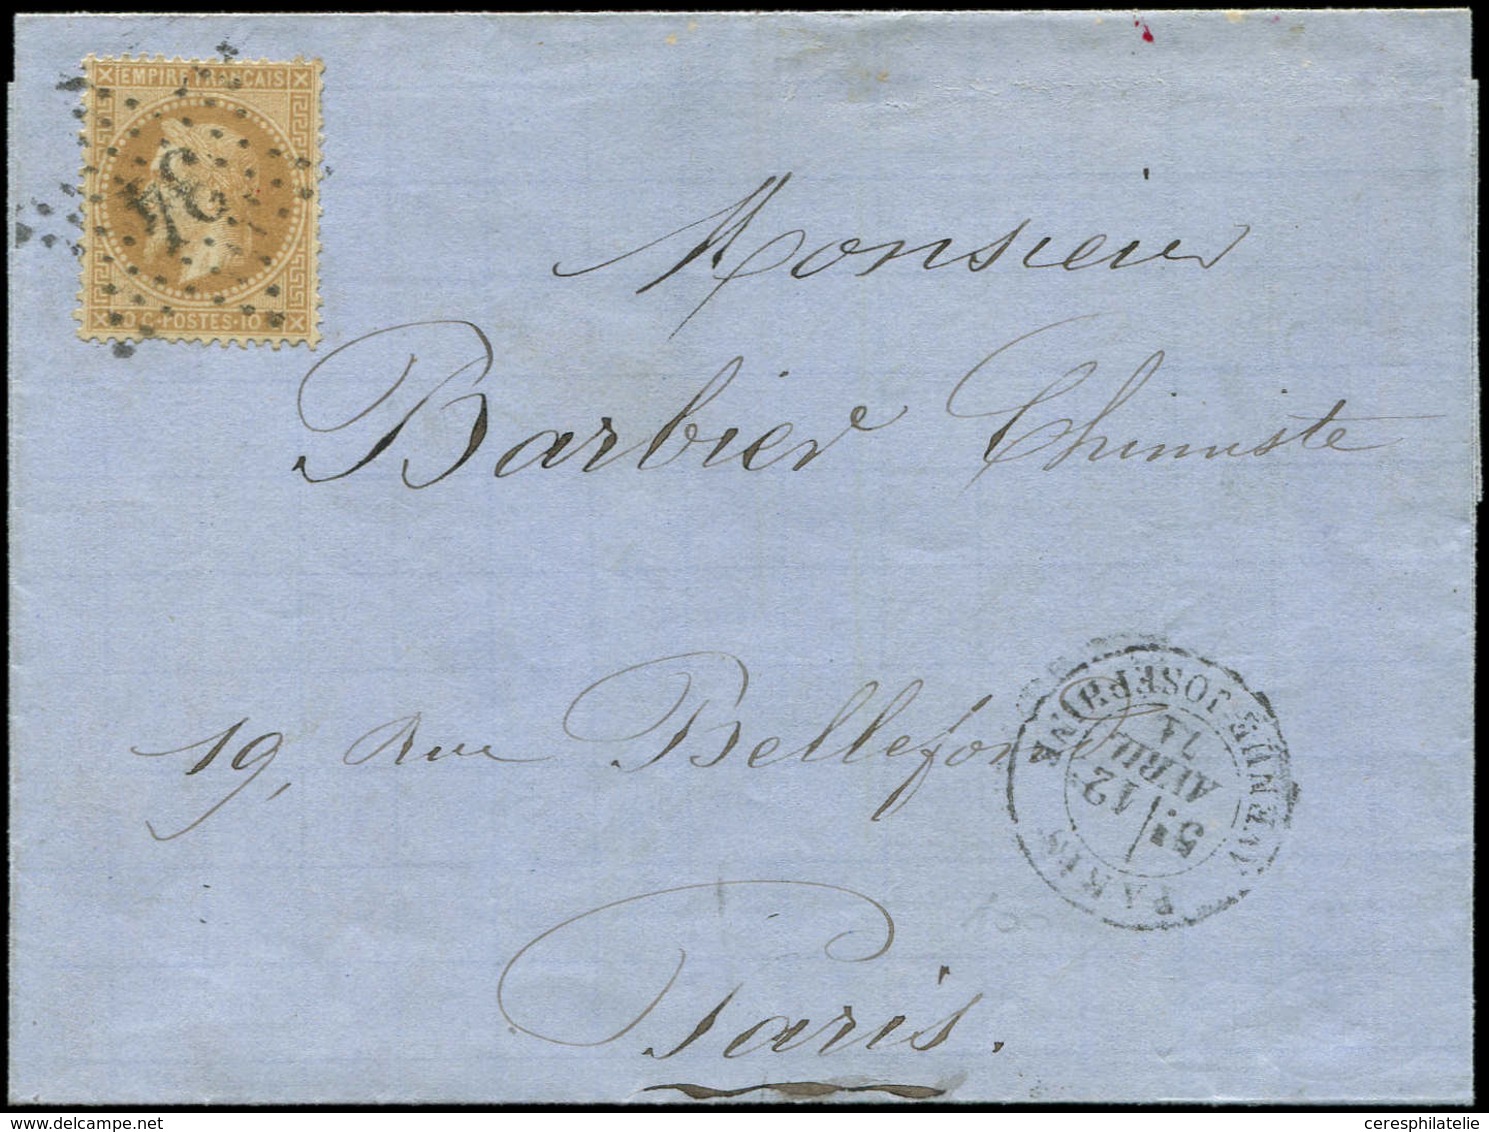 EMPIRE FRANÇAIS
34
10 C·POSTES·10
Monsieur
Barbier Chimiste
19, Rue Bellefond
AVENUE-JOSEPHINE
5E/ 12 AVRIL 71
PARIS
100
Paris.
delcampe.net
ceresphilatelie